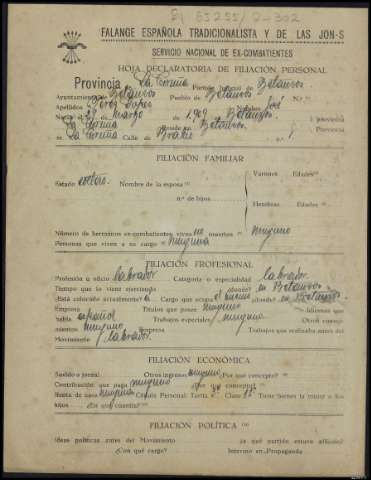 FALANGE ESPAÑOLA TRADICIONALISTA Y DE LAS JON-S
SERVICIO NACIONAL DE EX-COMBATIENTES
HOJA DECLARATORIA DE FILIACIÓN PERSONAL
Provincia La Coruña Partido Judicial de Betanzos
Ayuntamiento de Betanzos Pueblo de Betanzos
Apellidos Pérez Nombre José
Marzo 1.909 Betanzos provincia
La Coruña Betanzos Provincia
de La Coruña Calle de n.º
FILIACIÓN FAMILIAR
Estado soltero Nombre de la esposa
Varones Edades
n.º de hijos
Hembras Edades
Número de hermanos ex-combatientes vivos no muertos ninguno
Personas que viven a su cargo ninguna
FILIACIÓN PROFESIONAL
Profesión u oficio labrador Categoría o especialidad labrador
Tiempo que la viene ejerciendo en Betanzos
¿Está colocado actualmente? Cargo que ocupa el mismo ¿dónde? en Betanzos
Empresa Títulos que posee ninguno Idiomas que
habla español Trabajos especiales ninguno Otros conoci-
mientos ninguno Empresa Trabajos que realizaba antes del
Movimiento labrador
FILIACIÓN ECONÓMICA
Sueldo o jornal Otros ingresos ninguno ¿Por qué concepto?
Contribución que paga ninguno ¿Por qué concepto?
Renta de casa ninguna Cédula Personal: Tarifa Clase ¿Tiene bienes la mujer o los
hijos ¿En qué cuantía?
FILIACIÓN POLÍTICA
Ideas políticas antes del Movimiento ¿a qué partido estuvo afiliado?
¿Con qué cargo? Intervino en Propaganda